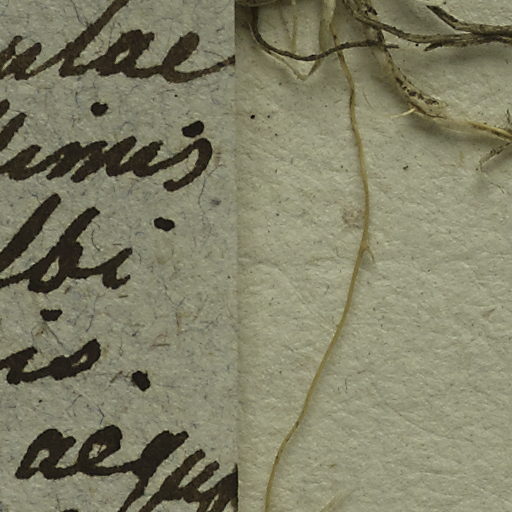 ulae
limis
lbi
is.
aequ